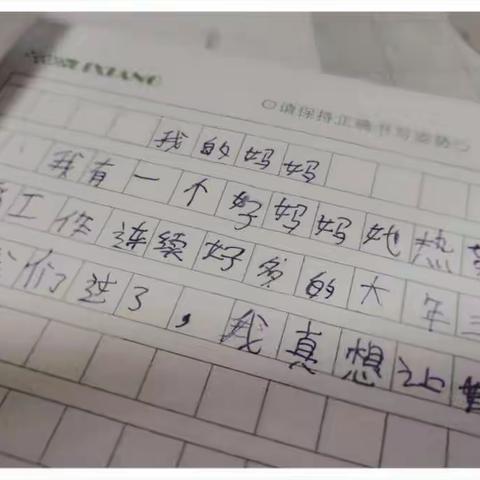 请保持正确书写姿势
我的妈妈
我有一个好妈妈她热
工作连续好多的大年三
们过了，我真想让